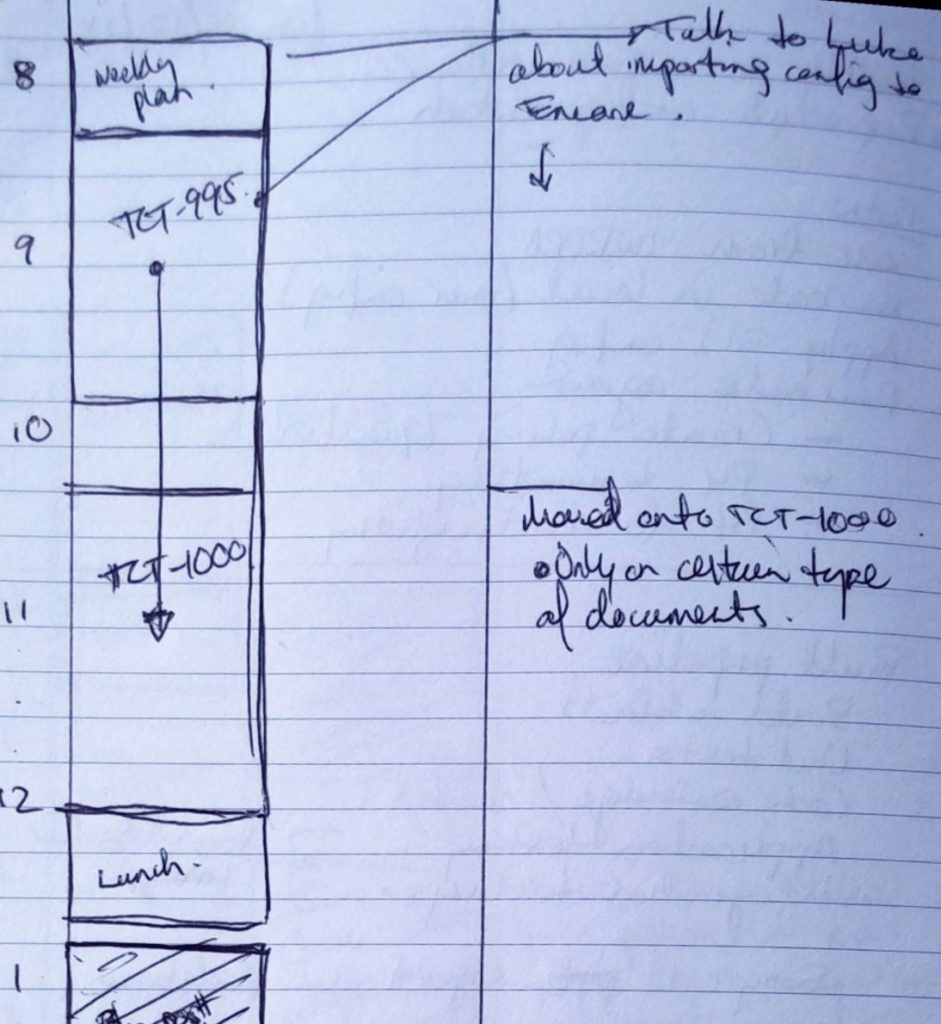 8
Weekly
plan.
Talk to Luke
about importing config to
TCT-995.
9
10
Moved onto TCT-1000
• Only on certain type
of documents.
TCT-1000
11
12
Lunch.
1